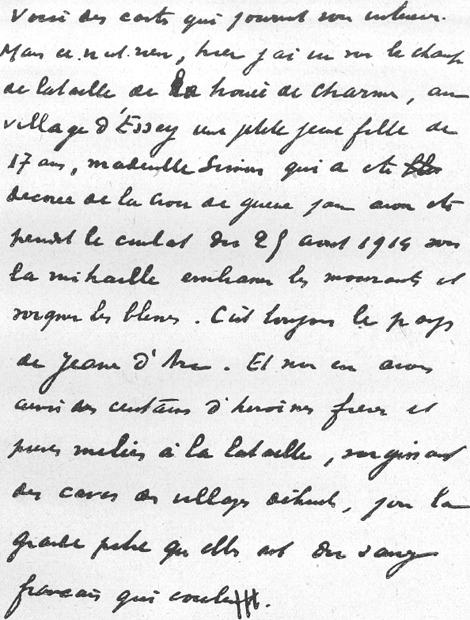 Voici des cartes qui pourront vous intéresser.
Mais ce n'est rien, hier j'ai vu sur le champ
de bataille de la trouée de Charmes, au
village d'Essey une petite jeune fille de
17 ans, mademoiselle Simon qui a été
décorée de la croix de guerre pour avoir été
pendant le combat du 25 aout 1914 sous
la mitraille embrasser les mourants et
soigner les blessés. C'est toujours le pays
de Jeanne d'Arc. Et nous en avons
ainsi des centaines d'heroines fieres et
pures melées à la bataille, surgissant
des caves des villages détruits, pour la
grande pitié qu'elles ont du sang
français qui coule